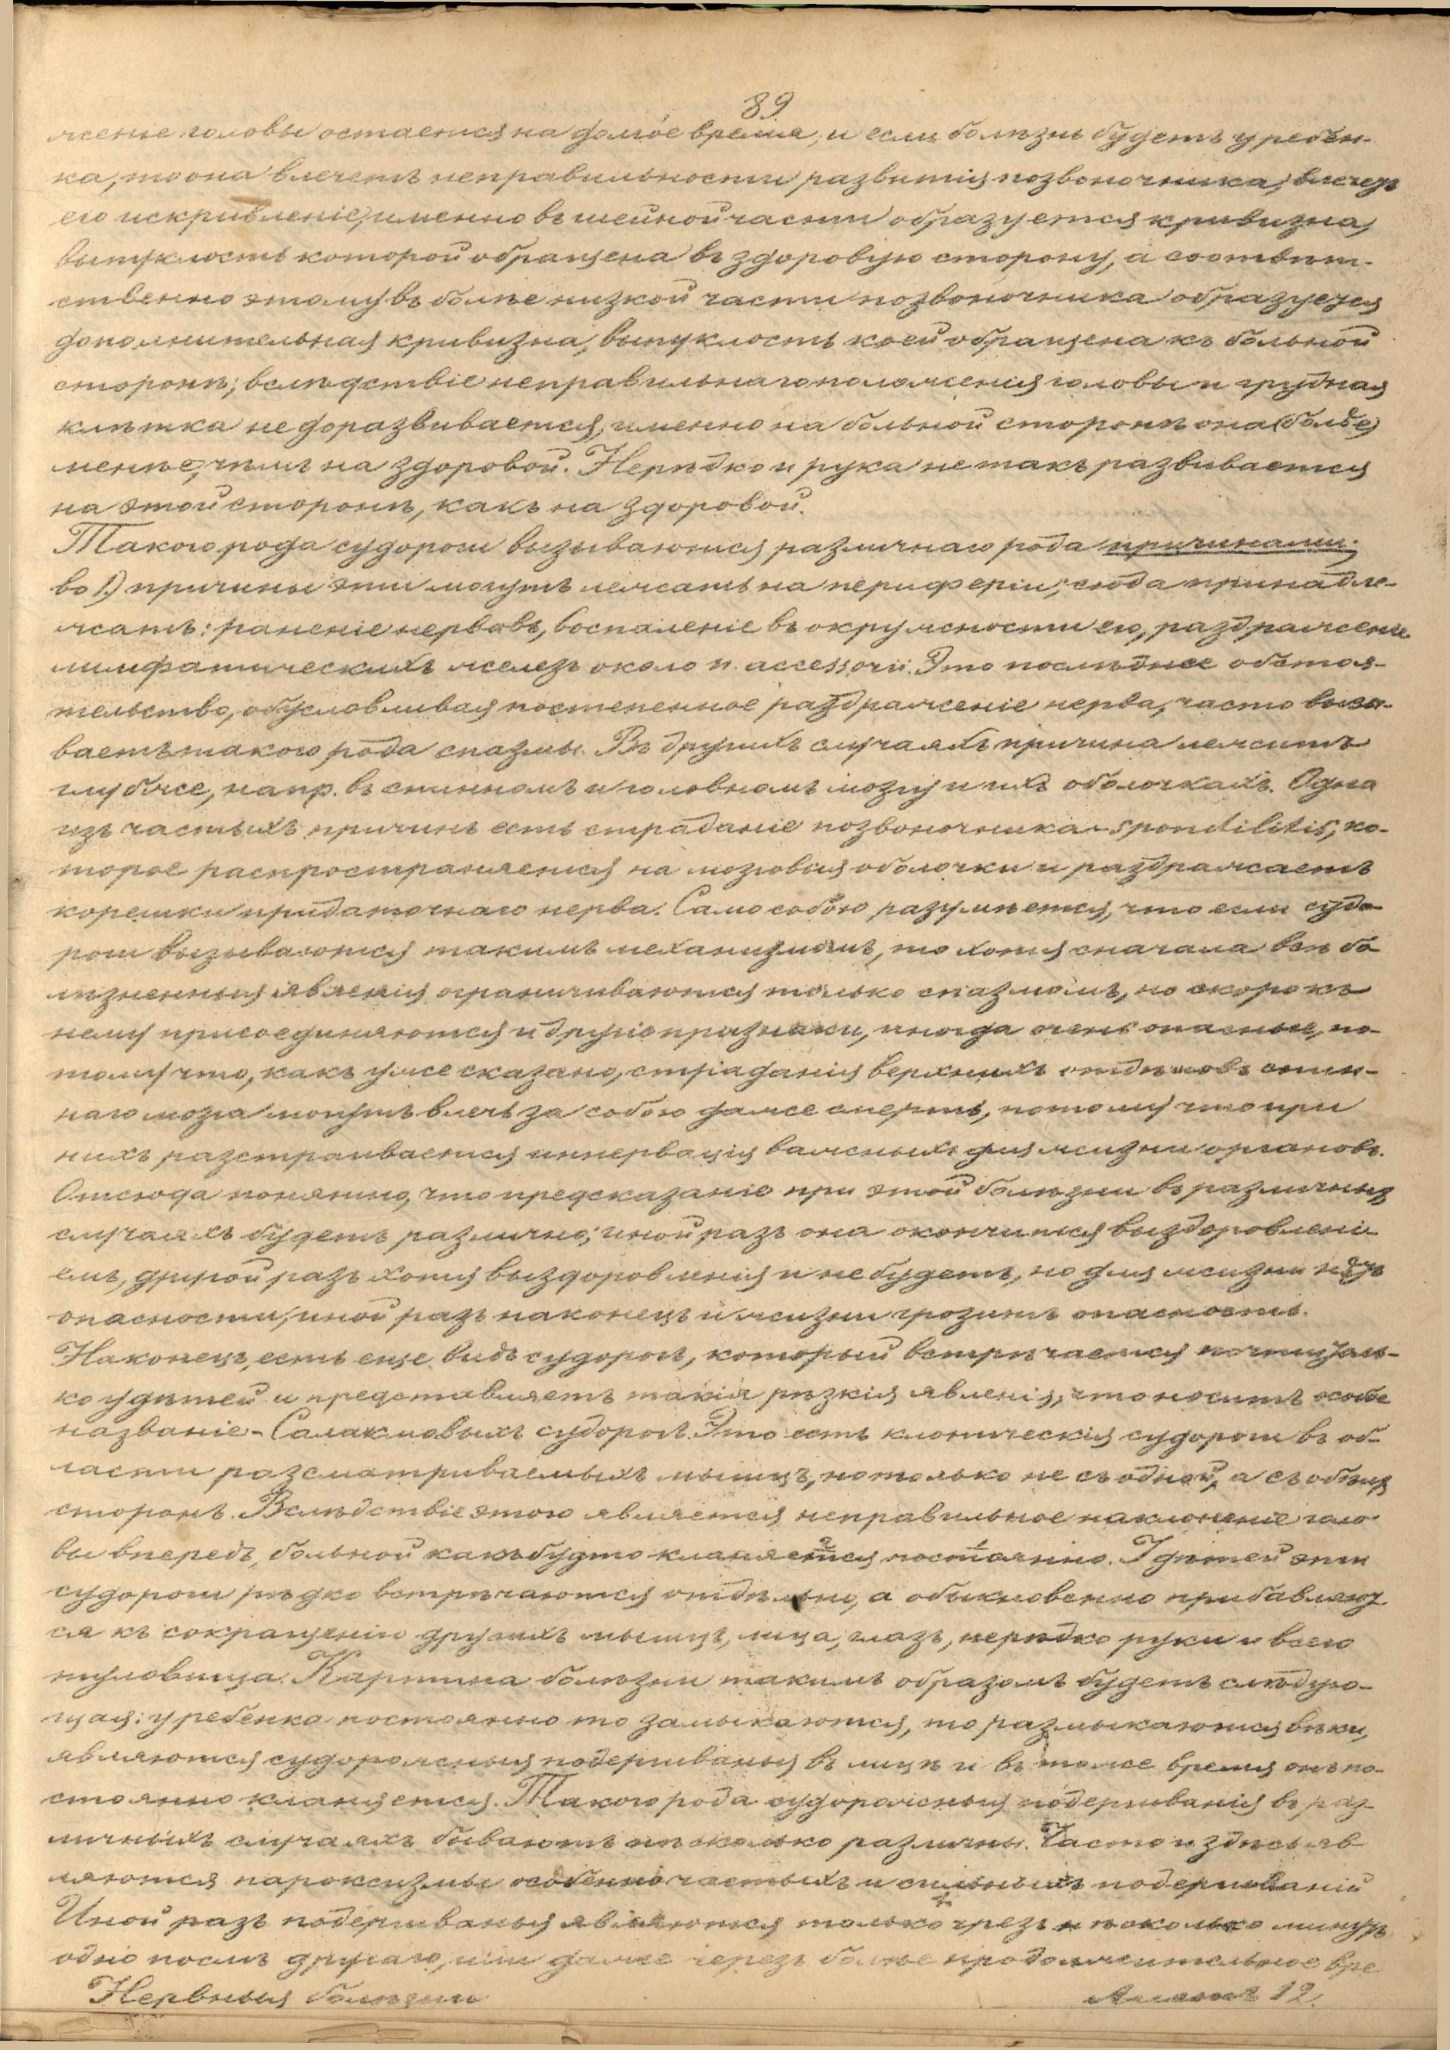 89
женіе головы остается на долгое время, и если болѣзнь будетъ у ребен-
ка, то она влечетъ неправильности развитія позвоночника, влечетъ
его искривленіе, именно въ шейной части образуется кривизна,
выпуклость которой обращена въ здоровую сторону, а соотвѣт-
ственно этому въ болѣе низкой части позвоночника образуется
дополнительная кривизна, выпуклость коей обращена къ больной
сторонѣ; вслѣдствіе неправильнаго положенія головы и грудная
клѣтка не доразвивается, именно на больной сторонѣ она (болѣе)
менѣе, чѣмъ на здоровой. Нерѣдко и рука не такъ развивается
на этой сторонѣ, какъ на здоровой.
Такого рода судороги вызываются различнаго рода причинами:
во 1.) причины эти могутъ лежать на периферіи; сюда принадле-
жатъ: раненіе нервовъ, воспаленіе въ окружности его, раздраженіе
лимфатическихъ железъ около n. accessorii. Это послѣднее обстоя-
тельство, обусловливая постепенное раздраженіе нерва, часто вызы-
ваетъ такого рода спазмы. Въ другихъ случаяхъ причина лежитъ
глубже, напр. въ спинномъ и головномъ мозгу и ихъ оболочкахъ. Одна
изъ частыхъ причинъ есть страданіе позвоночника - spondilitis, ко-
торое распространяется на мозговыя оболочки и раздражаетъ
корешки придаточнаго нерва. Само собою разумѣется, что если судо-
роги вызываются такимъ механизмомъ, то хотя сначала всѣ бо
лѣзненныя явленія ограничиваются только спазмомъ, но скоро къ
нему присоединяются и другіе признаки, иногда очень опасные, по-
тому что, какъ уже сказано, страданія верхнихъ отдѣловъ спин-
наго мозга могутъ влечь за собою даже смерть, потому что при
нихъ разстраивается иннервація важныхъ для жизни органовъ.
Отсюда понятно, что предсказаніе при этой болѣзни въ различныхъ
случаяхъ будетъ различно; иной разъ она окончится выздоровлені-
емъ, другой разъ хотя выздоровленія и не будетъ, но для жизни нѣтъ
опасности, иной разъ наконецъ и жизни грозитъ опасность.
Наконецъ, есть еще видъ судорогъ, который встрѣчается почти толь-
ко у дѣтей и представляетъ такія рѣзкія явленія, что носитъ особое
названіе - Салаамовыхъ судорогъ. Это есть клоническія судороги въ об-
ласти разсматриваемыхъ мышцъ, но только не съ одной, а съ обѣихъ
сторонъ. Вслѣдствіе этого является неправильное наклоненіе голо
вы впередъ, больной какъ будто кланяется постоянно. У дѣтей эти
судороги рѣдко встрѣчаются отдѣльно, а обыкновенно прибавляют
ся къ сокращеніи другихъ мышцъ, лица, глазъ, нерѣдко руки и всего
туловища. Картина болѣзни такимъ образомъ будетъ слѣдую-
щая: у ребенка постоянно то замыкаются, то размыкаются вѣки,
являются судорожныя подергиванья въ лицѣ и въ тоже время онъ по-
стоянно кланяется. Такого рода судорожныя подергиванія въ раз-
личныхъ случаяхъ бываютъ нѣсколько различны. Часто и здѣсь яв
ляются пароксизмы особенно частыхъ и сильныхъ подергиваній
Иной разъ подергиванья являются только чрезъ нѣсколько минутъ
одно послѣ другаго, или даже черезъ болѣе продолжительное вре
Нервныя болѣзни 12.